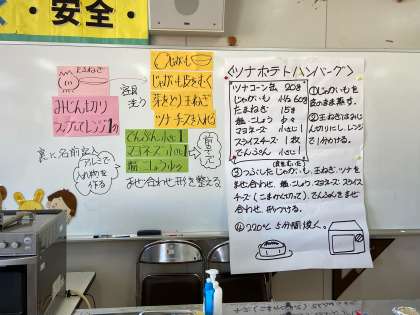 安全
たまねぎ
みじん切り
スプで レンジ1分
じゃがいも皮をむく
芽をとり 玉ねぎ
ツナ チーズを入れる
でんぷん 小1
マヨネーズ 小1
塩 こしょう 少々
アルミで
入れ物
を作る
あせ合わせ形を整える
〈ツナポテトハンバーグ〉
ツナコーン缶 20g
じゃがいも 1/2 60g
たまねぎ 15g
塩.こしょう 少々
マヨネーズ 小さじ1
スライスチーズ 1枚
でんぷん 小さじ1
①じゃがいもを
皮のまま蒸す。
②玉ねぎはみじ
ん切りにしレンジ
で1分かける。
③つぶしたじゃがいも、玉ねぎ、ツナを
まぜ合わせ、塩、こしょう マヨネーズ スライス
チーズ(こまかく切って)でんぷんをまぜ
合わせ 形づける。
④220℃ 5分間焼く。